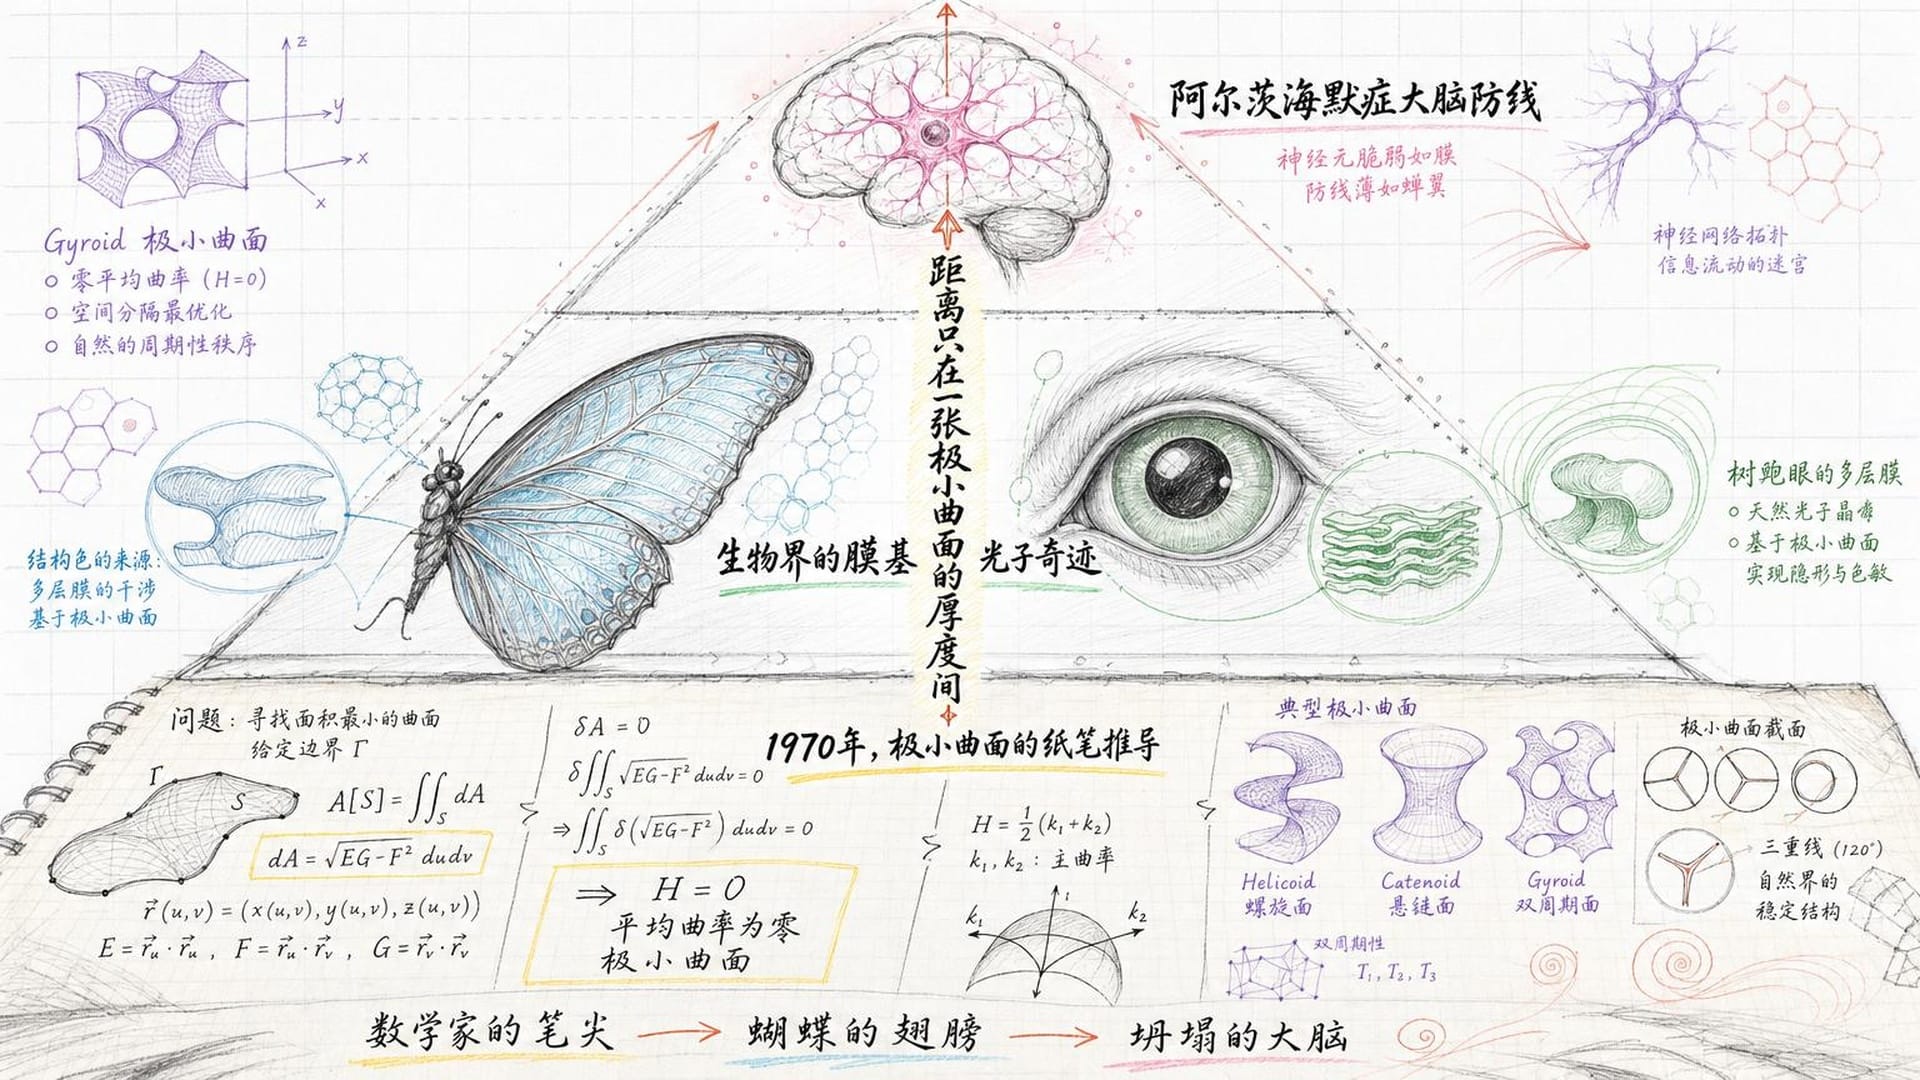 z
y
x
x
Gyroid 极小曲面
零平均曲率 (H=0)
空间分隔最优化
自然的周期性秩序
阿尔茨海默症大脑防线
神经元脆弱如膜
防线薄如蝉翼
神经网络拓扑
信息流动的迷宫
距离只在一张极小曲面的厚度间
结构色的来源:
多层膜的干涉
基于极小曲面
生物界的膜基
光子奇迹
天然光子晶
基于极小曲面
实现隐形与色敏
问题: 寻找面积最小的曲面
给定边界 Γ
Γ
S
A[S] = ∬_S dA
dA = √(EG-F²) dudv
r⃗(u,v) = (x(u,v), y(u,v), z(u,v))
E = r⃗_u · r⃗_u , F = r⃗_u · r⃗_v , G = r⃗_v · r⃗_v
δA = 0
δ∬_S √(EG-F²) dudv = 0
⇒ ∬_S δ(√(EG-F²)) dudv = 0
⇒ H = 0
平均曲率为零
极小曲面
1970年，极小曲面的纸笔推导
H = 1/2 (k₁+k₂)
k₁, k₂ : 主曲率
k₁
k₂
典型极小曲面
Helicoid
螺旋面
Catenoid
悬链面
Gyroid
双周期面
双周期性
T₁, T₂, T₃
极小曲面截面
三重线 (120°)
自然界的
稳定结构
数学家的笔尖 → 蝴蝶的翅膀 → 坍塌的大脑